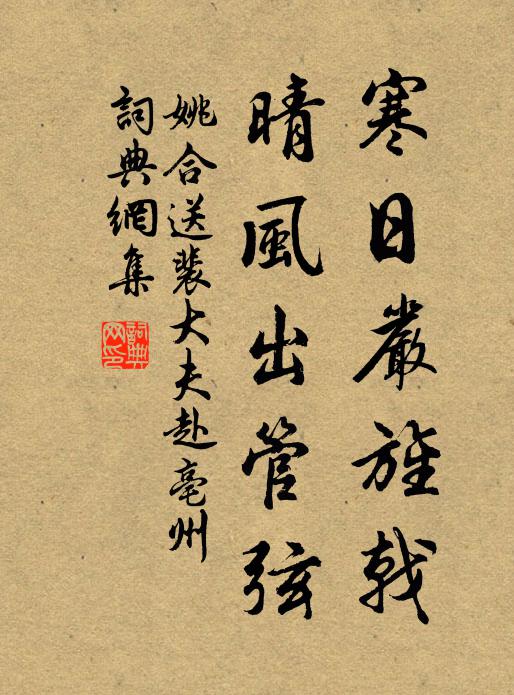 寒日嚴旌戟
晴風出管弦
姚合送裴大夫赴亳州
詞典網集
詞典网印